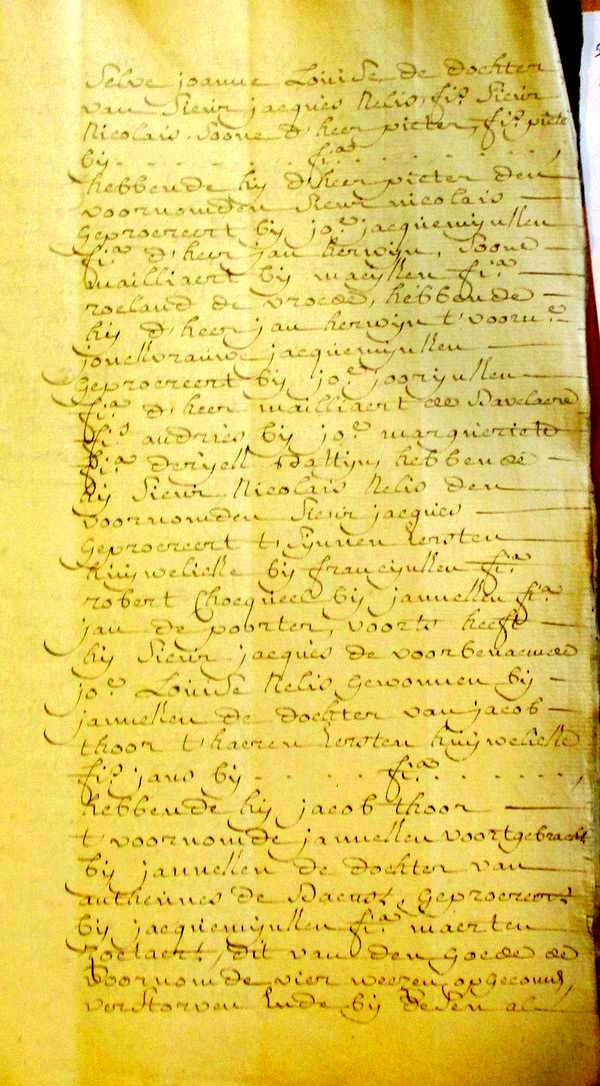 selve joanne Louise, de dochter
van Sieur jacques Nelis, fi.s Sieur
Nicolais, soone d'heer pieter, fi.s piete
bij . . . . . . fi.a . . . . . . ,
hebbende hij d'heer pieter den
voornomden Sieur nicolais —
geproereert bij jo.e jacquemijnken
fi.a d'heer jan herwijn, soone —
mailliaert bij maeijken fi.a —
roeland de vroede, hebbende —
hij d'heer jan herwijn t'voorn.e —
jonckvrauwe jacquemijnken —
geproereert bij jo.e joorijnken —
fi.a d'heer mailliaert de Bavelaere
fi.s andries bij jo.e margueriete
fi.a deryck hebbende
hij Sieur Nicolais Nelis den
voornomden Sieur jacques —
geproereert t'synnen eersten
huijwelicke bij francijnken fi.a
robert Chocqueel bij janneken fi.a
jan de poorter, voorts heeft —
hij Sieur jacques de voorbenaemde
jo.e Louise Nelis gewonnen bij —
janneken de dochter van jacob —
thoor t'haeren eersten huijwelicke
fi.s jans bij . . . . . fi.a . . . . . ,
hebbende hij jacob thoor —
t'voornomde janneken voortgebracht
bij janneken de dochter van —
anthennes de Baenst, geproereert
bij jacquemijnken fi.a maerten
roelaert, dit van den goede de
voornomde vier weezen opgecomen,
verstorven ende bij desen al